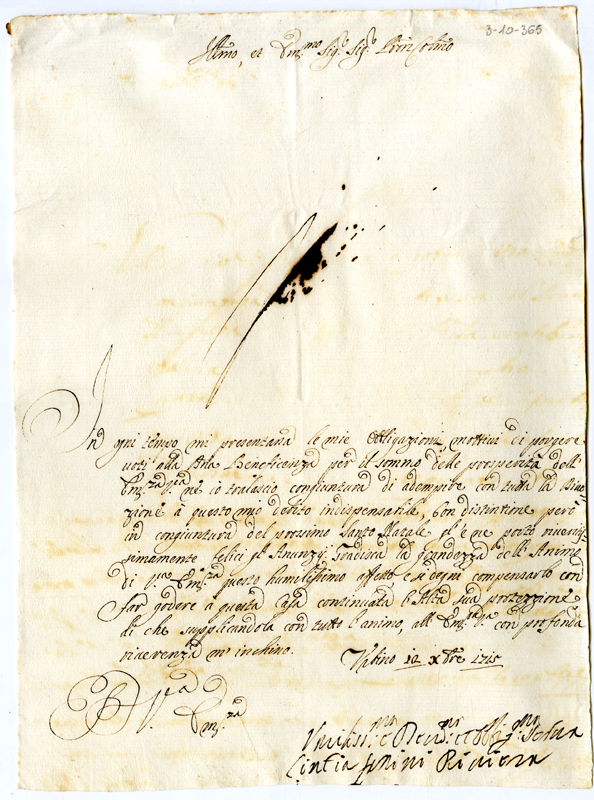 3-10-365
Ill.mo, et Em.mo Sig.r Sig.r Prin Col.mo
In ogni tempo mi presentana le mie obbligazioni mottivi di porgere
voti alla Beneficenza per il sommo delle prosperità dell'
Em.za V.ra nè io tralascio congiuntura di adempire con tutta la Divo-
zione à questo mio debito indispensabile, Con distintione però
in congiuntura del prossimo Santo Natale gl'e ne porto riveritis-
simamente felici gl'Anunzij Gradirà la grandezza dell'Animo
di V.ra Em.za questo humilissimo affetto e si degni compensarlo con
far godere a questa Casa continuata l'Alta sua protezzione
di che supplicandola con tutto l'animo, all'Em.za V.ra con profonda
riverenza m'inchino.
Urbino 12 xbre 1715
D V.ra
Em.za
Umiliss.ma e Dev.ma et Obblig.ma Serva
Cintia Riviera